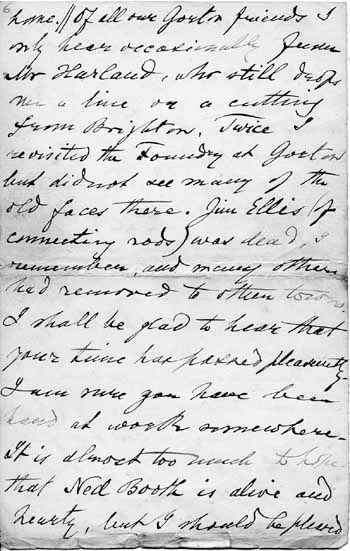 6
home. // Of all our Gorton friends I
only hear occasionally from
Mr Harland, who still drops
me a line or a cutting
from Brighton. Twice I
revisited the Foundry at Gorton
but did not see many of the
old faces there. Jim Ellis (of
connecting rods) was dead, I
remember, and many others
had removed to other towns.
I shall be glad to hear that
your time has passed pleasantly.
I am sure you have been
hard at work somewhere.
It is almost too much to hope
that Ned Booth is alive and
hearty, but I should be pleased